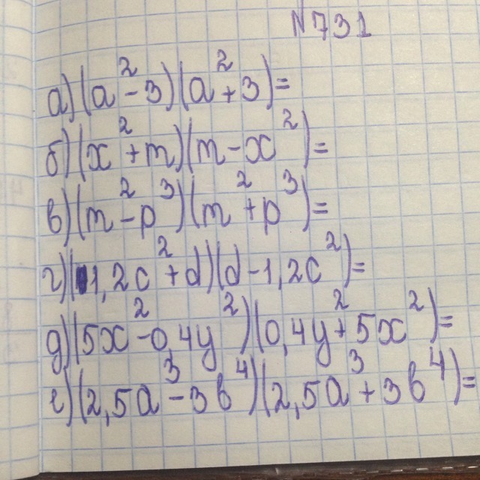 N731
а)(a²-3)(a²+3)=
б)(x²+m)(m-x²)=
в)(m²-p³)(m²+p³)=
г)(1,2c²+d)(d-1,2c²)=
д)(5x²-0,4y²)(0,4y²+5x²)=
е)(2,5a³-3b⁴)(2,5a³+3b⁴)=